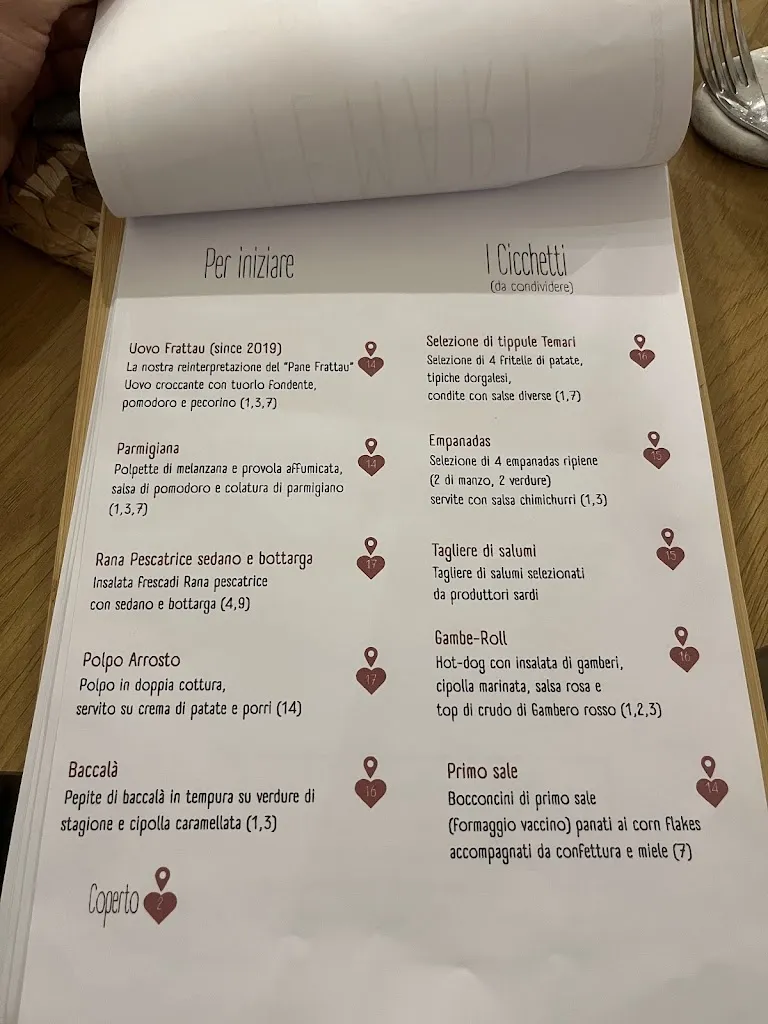 TEMARI
Per iniziare
Uovo Frattau (since 2019)
14
La nostra reinterpretazione del "Pane Frattau"
Uovo croccante con tuorlo fondente,
pomodoro e pecorino (1,3,7)
Parmigiana
14
Polpette di melanzana e provola affumicata,
salsa di pomodoro e colatura di parmigiano
(1,3,7)
Rana Pescatrice sedano e bottarga
17
Insalata frescadi Rana pescatrice
con sedano e bottarga (4,9)
Polpo Arrosto
17
Polpo in doppia cottura,
servito su crema di patate e porri (14)
Baccalà
16
Pepite di baccalà in tempura su verdure di
stagione e cipolla caramellata (1,3)
Coperto 2
I Cicchetti
(da condividere)
Selezione di tippule Temari
16
Selezione di 4 fritelle di patate,
tipiche dorgalesi,
condite con salse diverse (1,7)
Empanadas
15
Selezione di 4 empanadas ripiene
(2 di manzo, 2 verdure)
servite con salsa chimichurri (1,3)
Tagliere di salumi
15
Tagliere di salumi selezionati
da produttori sardi
Gambe-Roll
16
Hot-dog con insalata di gamberi,
cipolla marinata, salsa rosa e
top di crudo di Gambero rosso (1,2,3)
Primo sale
14
Bocconcini di primo sale
(formaggio vaccino) panati ai corn flakes
accompagnati da confettura e miele (7)